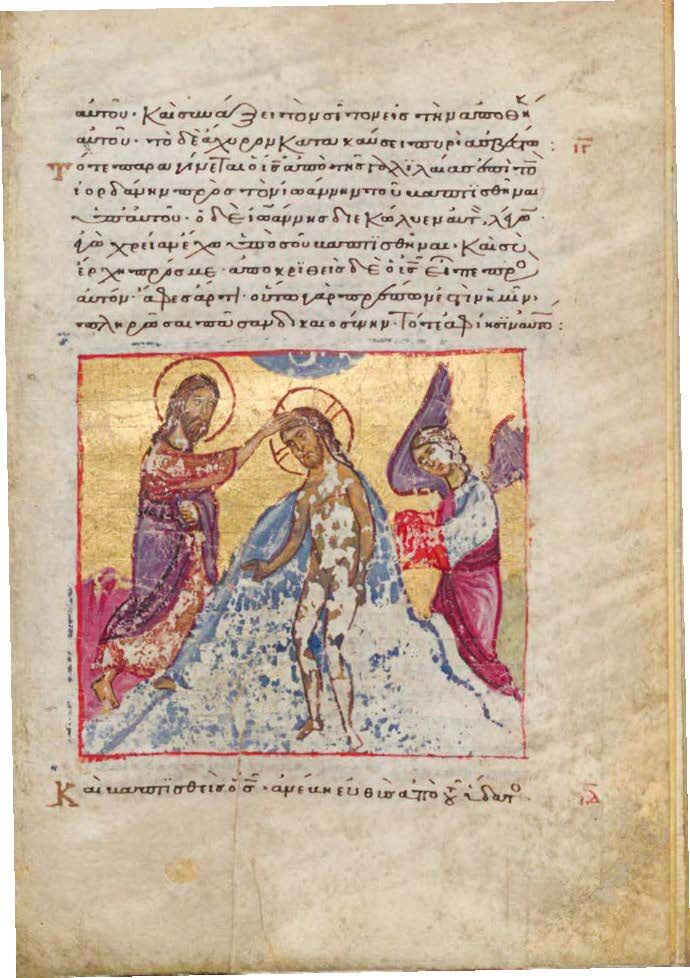 αὐτοῦ· καὶ συνάξει τὸν σῖτον εἰς τὴν ἀποθήκ
αὐτοῦ· τὸ δὲ ἄχυρον κατακαύσει πυρὶ ἀσβέστω : ιγ
Τότε παραγίνεται ὁ ις ἀπὸ τῆς γαλιλαίας ἐπὶ τὸν
ἰορδάνην πρὸς τὸν ἰωάννην τοῦ βαπτισθῆναι
ὑπ' αὐτοῦ· ὁ δὲ ἰωάννης διεκώλυεν αὐτὸν λέγων·
ἐγὼ χρείαν ἔχω ὑπὸ σοῦ βαπτισθῆναι· καὶ σὺ
ἔρχη πρός με· ἀποκριθεὶς δὲ ὁ ις εἶπε πρὸ
αὐτόν· ἄφες ἄρτι· οὕτω γὰρ πρέπον ἐστὶν ἡμῖν·
πληρῶσαι πᾶσαν δικαιοσύνην· τότε ἀφίησιν αὐτὸν :
Καὶ βαπτισθεὶς ὁ ις· ἀνέβη εὐθὺς ἀπὸ τοῦ ὕδατο· ιδ